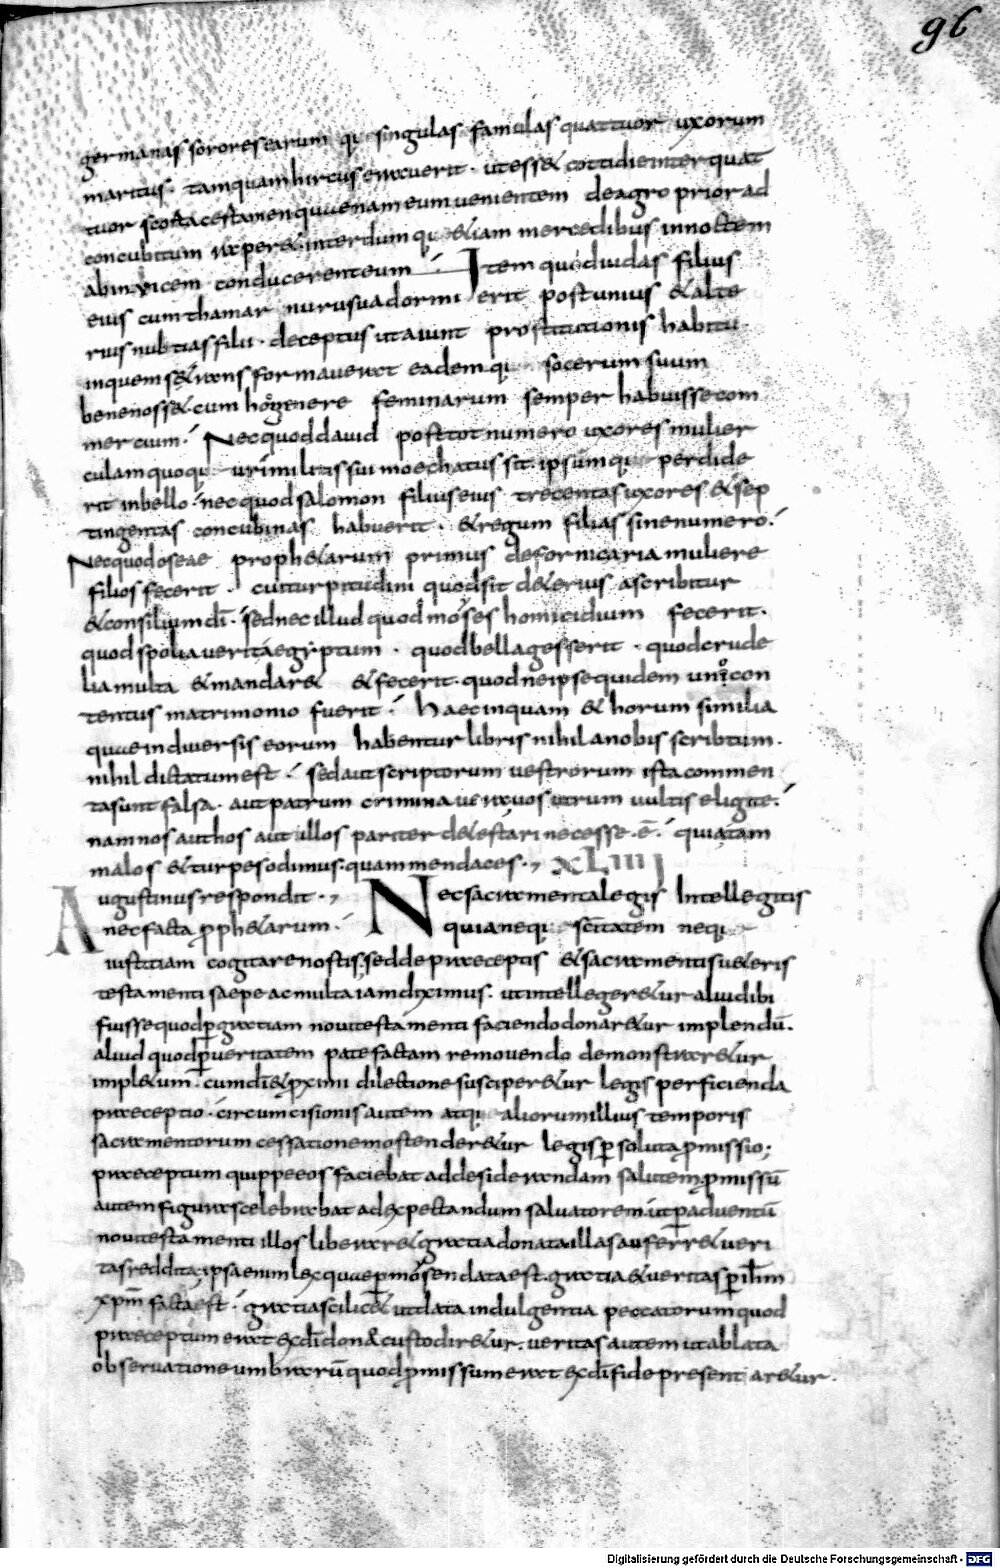 96
germanas sorores earum qui singulas famulas quattuor uxorum
maritus · tamquam hircus erraverit · ut esset cottidie inter quat
tuor scorta certamen quaenam eum venientem de agro prior ad
concubitum raperet · interdum qui etiam mercedibus in noctem
ab invicem conducerent eum · Item quod iudas filius
eius cum thamar nuru sua dormi erit post unius et alte
rius nubtias filii · deceptus ut aiunt prostitutionis habitu ·
in quem se trans formaverat eadem qui socerum suum
bene nosset cum hoc genere feminarum semper habuisse com
mercium · Nec quod david post tot numero uxores mulier
culam quoqu uri militis sui moechatus sit · ipsumqu perdide
rit in bello · nec quod salomon filius eius trecentas uxores et sep
tingentas concubinas habuerit · et regum filias sine numero ·
Nec quod oseae prophetarum primus de fornicaria muliere
filios fecerit · cui turpitudini quod sit deterius ascribitur
et consilium dī · sed nec illud quod moyses homicidium fecerit ·
quod spoliaverit aegyptum · quod bella gesserit · quod crude
lia multa et mandaret et fecerit · quod ne ipse quidem uno con
tentus matrimonio fuerit · haec inquam et horum similia
quae in diversis eorum habentur libris nihil a nobis scribtum ·
nihil dictatum est · sed aut scriptorum vestrorum ista commen
ta sunt falsa · aut patrum crimina vera vos utrum vultis eligite ·
nam nos aut hos aut illos pariter detestari necesse · ē · quia tam
malos et turpes odimus · quam mendaces · XLIIII
Augustinus respondit · Nec sacramenta legis Intellegitis
nec facta pphetarum · quia nequ scitatem nequ
iustitiam cogitare nostis · sed de praeceptis et sacramentis veteris
testamenti saepe ac multa iam diximus · ut intellegeretur aliud ibi
fuisse quod p gratiam novi testamenti faciendo donaretur implendū ·
aliud quod p veritatem patefactam removendo demonstraretur
impletum · cum dī et pximi dilectione susciperetur legis perficienda
praeceptio · circumcisionis autem atqu aliorum illius temporis
sacramentorum cessatione mostenderetur legis p soluta pmissio ;
praeceptum quippe eos faciebat ad desiderandam salutem pmissū
autem figuras celebrabat ad expectandum salvatorem · ut p adventū
novi testamenti illos liberaret gratia donata illas auferret veri
tas reddita · ipsa enim lex quae p mosen data est · gratia et veritas p ihm
xpm facta est · gratia scilicet ut data indulgentia peccatorum quod
praeceptum erat ex dī dono custodiretur · veritas autem ut ablata
observatione umbrarū quod pmissum erat ex dī fide presentaretur ·
Digitalisierung gefördert durch die Deutsche Forschungsgemeinschaft - DFG